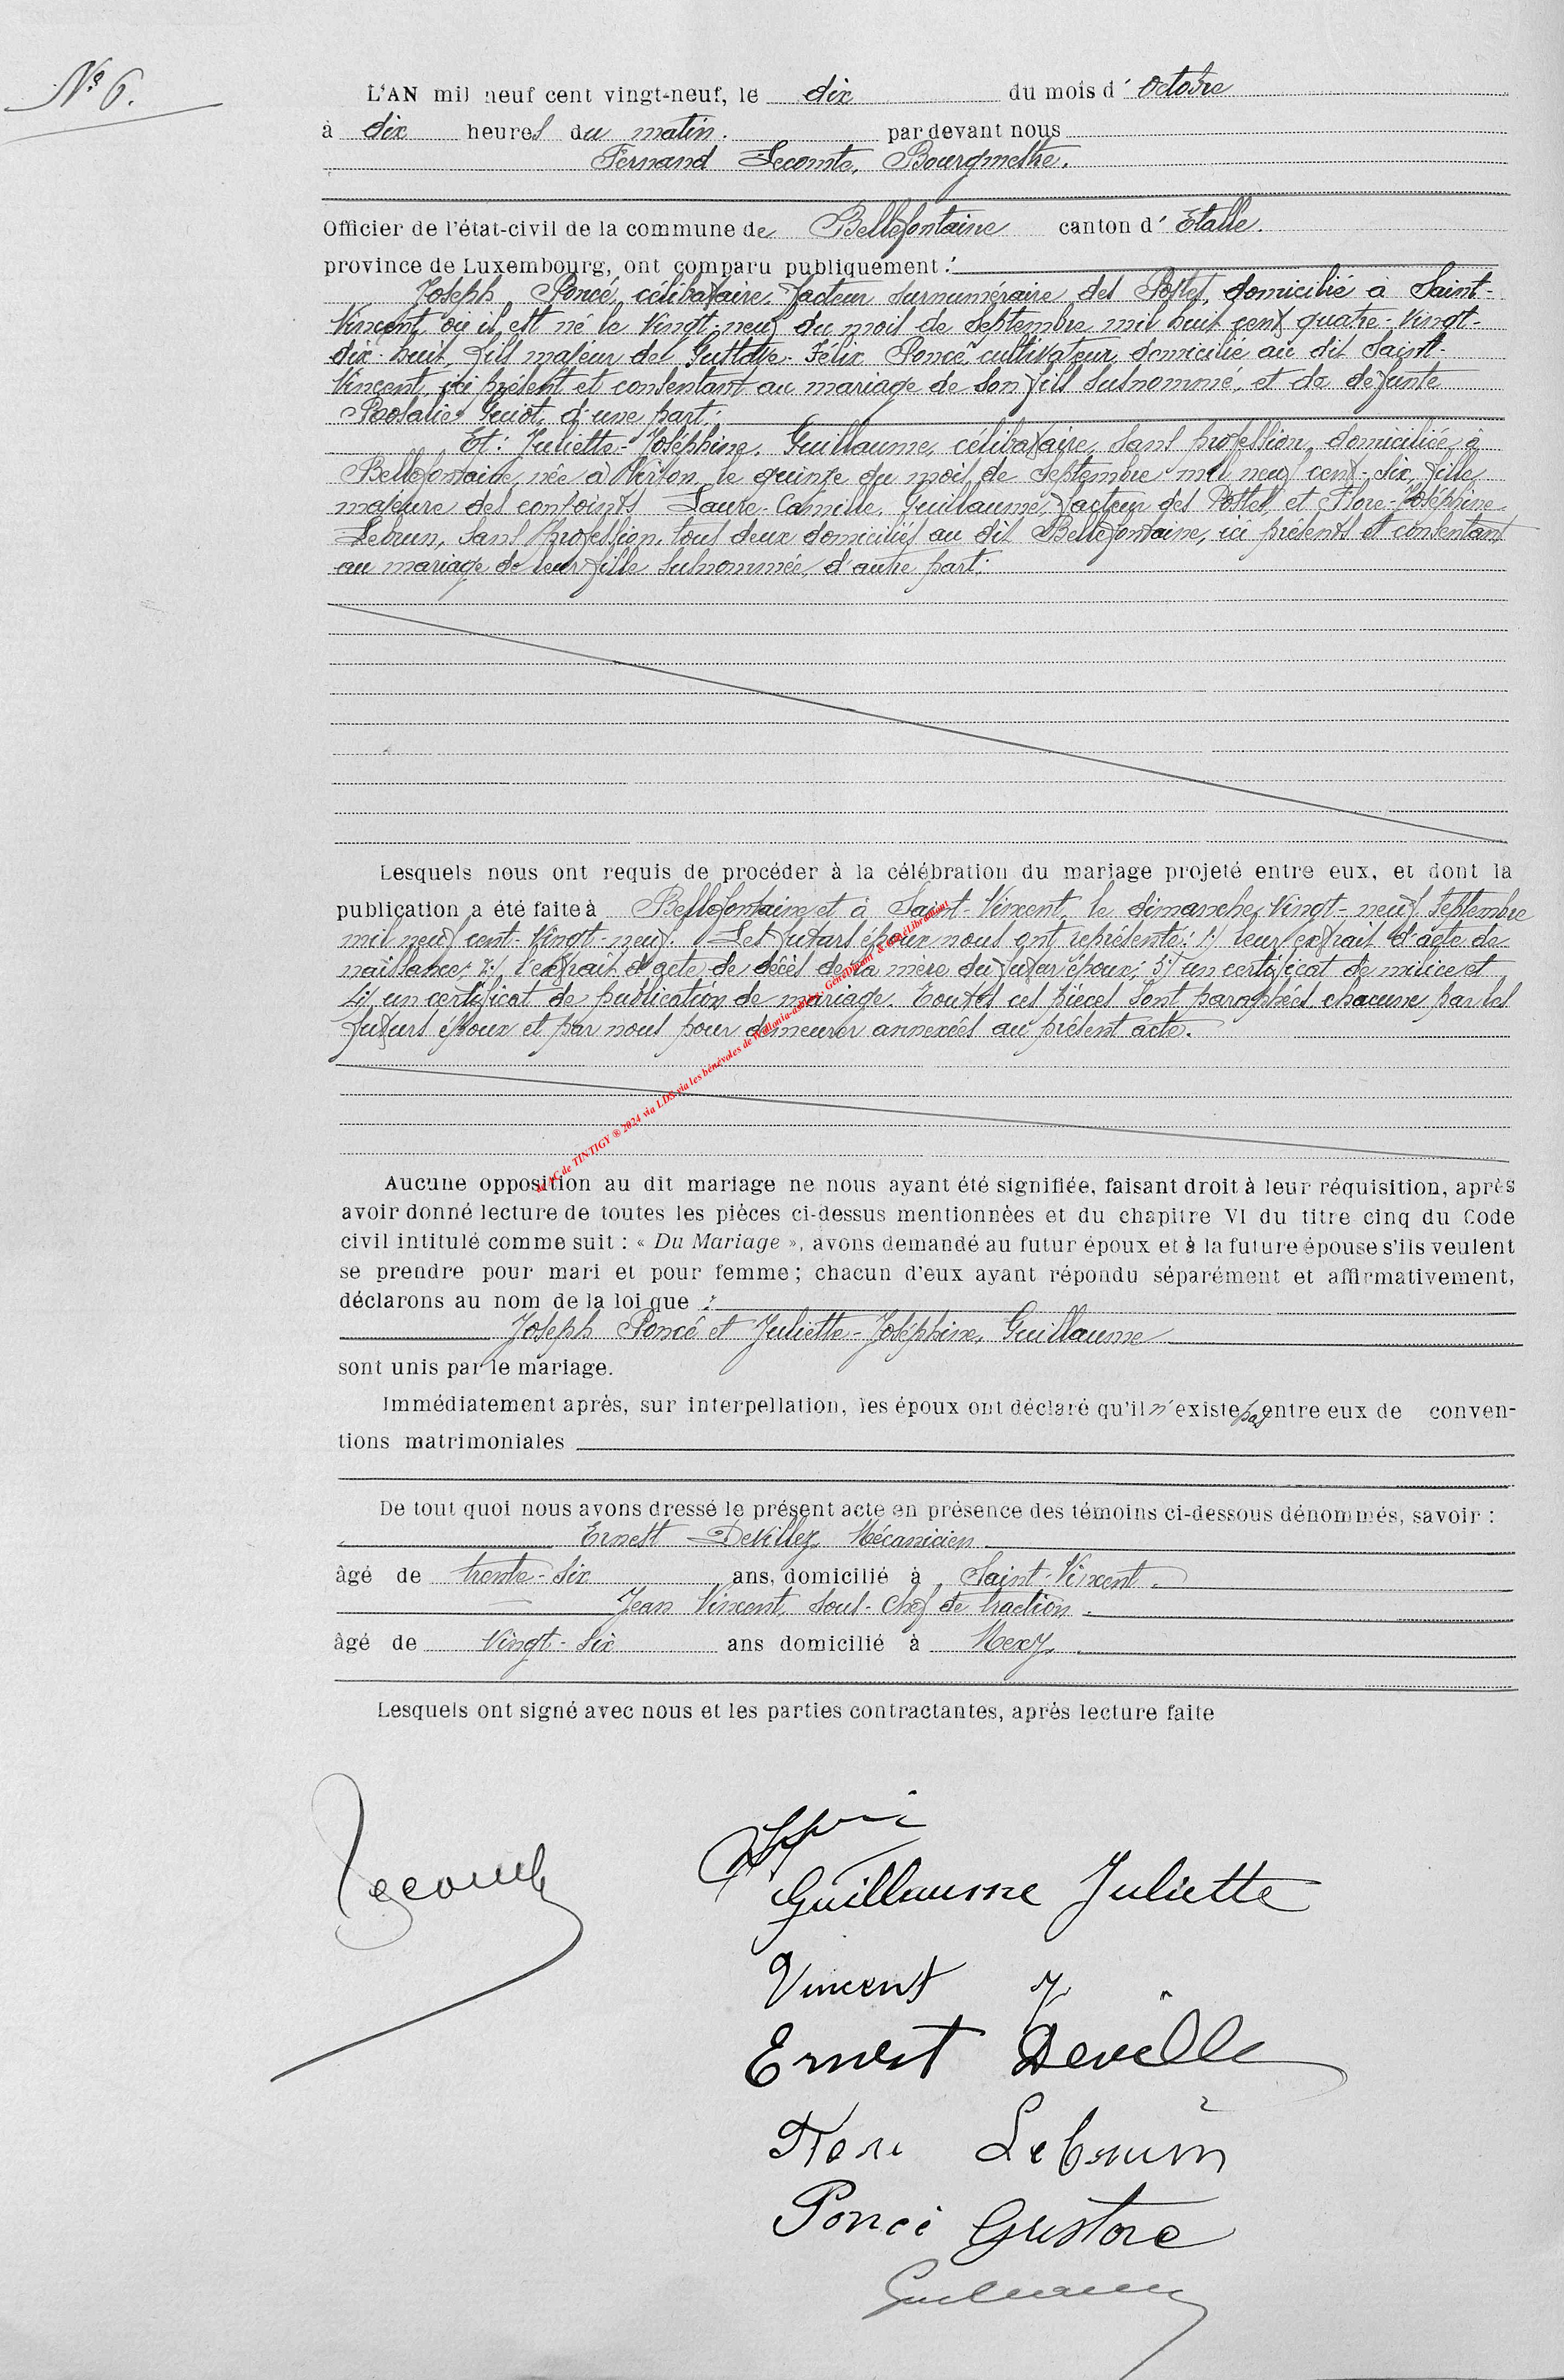 N° 6.
L'AN mil neuf cent vingt-neuf, le dix du mois d' Octobre
à dix heures du matin. par devant nous
Fernand Lecomte, Bourgmestre.
Officier de l'état-civil de la commune de Bellefontaine canton d' Etalle.
province de Luxembourg, ont comparu publiquement :
Joseph Poncé, célibataire, facteur surnuméraire des Postes, domicilié à Saint-
Vincent où il est né le vingt-neuf du mois de Septembre mil huit cent quatre-vingt-
dix-huit, fils majeur de Gustave-Félix Poncé, cultivateur, domicilié au dit Saint-
Vincent, ici présent et consentant au mariage de son fils susnommé, et de défunte
Rosalie Guiot, d'une part;
Et: Juliette-Joséphine, Guillaume, célibataire, sans profession, domiciliée à
Bellefontaine, née à Virton, le quinze du mois de Septembre mil neuf cent-six, fille
majeure des conjoints Laure-Camille, Guillaume, facteur des Postes, et Flore-Joséphine
Lebrun, sans profession, tous deux domiciliés au dit Bellefontaine, ici présents et consentant
au mariage de leur fille susnommée, d'autre part;
Lesquels nous ont requis de procéder à la célébration du mariage projeté entre eux, et dont la
publication a été faite à Bellefontaine et à Saint-Vincent, le dimanche, vingt-neuf Septembre
mil neuf cent-vingt-neuf. Les futurs époux nous ont représenté: 1/ leur extrait d'acte de
naissance; 2/ l'extrait d'acte de décès de la mère du futur époux; 3/ un certificat de milice et
4/ un certificat de publication de mariage. Toutes ces pièces sont paraphées chacune par les
futurs époux et par nous pour demeurer annexées au présent acte.
AC de TINTIGY ® 2024 via LDS via les bénévoles de Wallonia-asbl by GénéDinant & GénéLibramont
Aucune opposition au dit mariage ne nous ayant été signifiée, faisant droit à leur réquisition, après
avoir donné lecture de toutes les pièces ci-dessus mentionnées et du chapitre VI du titre cinq du Code
civil intitulé comme suit : « Du Mariage », avons demandé au futur époux et à la future épouse s'ils veulent
se prendre pour mari et pour femme ; chacun d'eux ayant répondu séparément et affirmativement,
déclarons au nom de la loi que :
Joseph Poncé et Juliette-Joséphine, Guillaume
sont unis par le mariage.
Immédiatement après, sur interpellation, les époux ont déclaré qu'il n'existe pas entre eux de conven-
tions matrimoniales
De tout quoi nous avons dressé le présent acte en présence des témoins ci-dessous dénommés, savoir :
Ernest Devillez, Mécanicien
âgé de trente-six ans, domicilié à Saint-Vincent.
Jean Vincent, sous-chef de traction.
âgé de vingt-six ans domicilié à Mexy.
Lesquels ont signé avec nous et les parties contractantes, après lecture faite
Lecomte
Guillaume Juliette
Vincent J
Ernest Deville
Flore Lebrun
Poncé Gustave
Guillaume